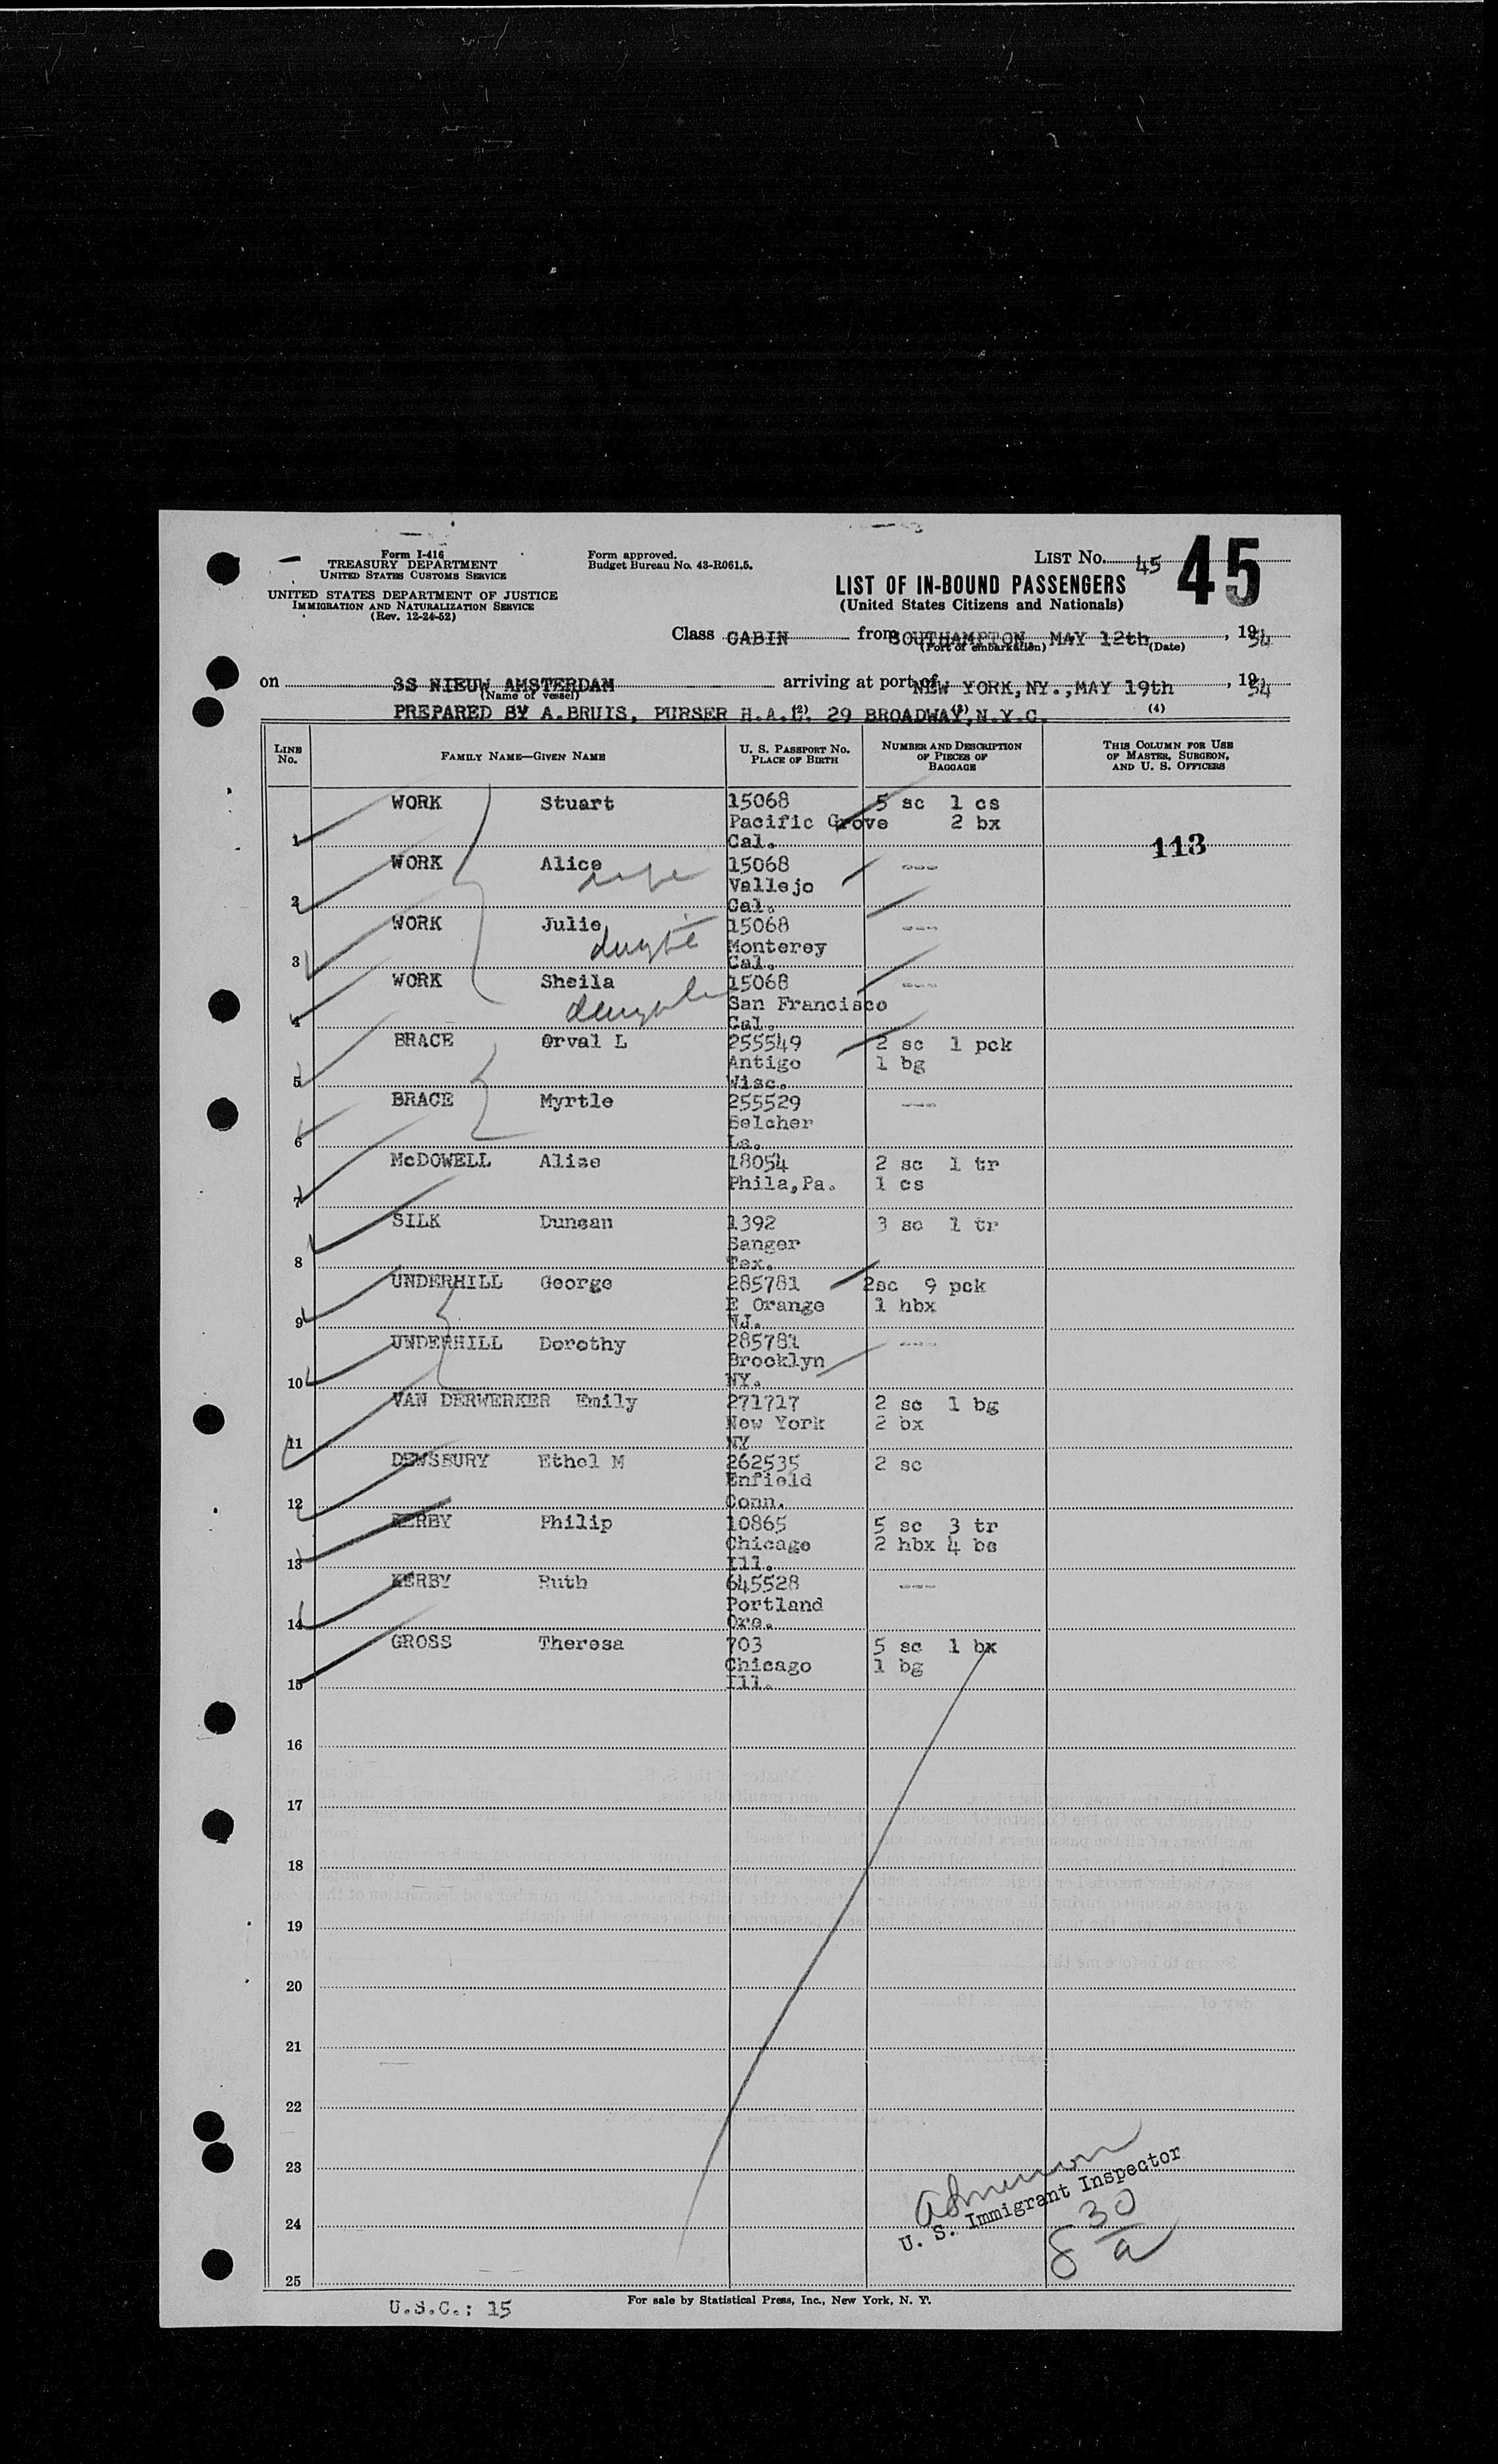 Form I-416
TREASURY DEPARTMENT
UNITED STATES CUSTOMS SERVICE
UNITED STATES DEPARTMENT OF JUSTICE
IMMIGRATION AND NATURALIZATION SERVICE
(Rev. 12-24-52)
Form approved.
Budget Bureau No. 43-R061.5.
LIST No. 45 45
LIST OF IN-BOUND PASSENGERS
(United States Citizens and Nationals)
Class CABIN from SOUTHAMPTON, MAY 12th, 1954
(Port of embarkation) (Date)
on SS NIEUW AMSTERDAM arriving at port of NEW YORK,NY.,MAY 19th, 1954
(Name of vessel)
PREPARED BY A.BRUIS, PURSER H.A.L. 29 BROADWAY, N.Y.C.
(2) (3) (4)
LINE No. FAMILY NAME—GIVEN NAME U. S. PASSPORT No. PLACE OF BIRTH NUMBER AND DESCRIPTION OF PIECES OF BAGGAGE THIS COLUMN FOR USE OF MASTER, SURGEON, AND U. S. OFFICERS
WORK Stuart 15068 5 sc 1 cs
Pacific Grove 2 bx
1 Cal. 113
WORK Alice 15068 ---
wife Vallejo
2 Cal.
WORK Julie 15068 ---
Monterey
3 Cal.
WORK Sheila 15068 ---
San Francisco
4 Cal.
BRACE Orval L 255549 2 sc 1 pck
Antigo 1 bg
5 Wisc.
BRACE Myrtle 255529 ---
Belcher
6 La.
McDOWELL Alise 18054 2 sc 1 tr
Phila,Pa. 1 cs
7
SILK Duncan 1392 3 sc 1 tr
Sanger
8 Tex.
UNDERHILL George 285781 2sc 9 pck
E Orange 1 hbx
9 NJ.
UNDERHILL Dorothy 285781 ---
Brooklyn
10 NY.
VAN DERWERKER Emily 271717 2 sc 1 bg
New York 2 bx
11 NY
DEWSBURY Ethel M 262535 2 sc
Enfield
12 Conn.
KERBY Philip 10865 5 sc 3 tr
Chicago 2 hbx 4 bs
13 Ill.
KERBY Ruth 645528 ---
Portland
14 Ore.
GROSS Theresa 703 5 sc 1 bx
Chicago 1 bg
15 Ill.
16
17
18
19
20
21
22
23
24
25
U. S. Immigrant Inspector
8 30/a
For sale by Statistical Press, Inc., New York, N. Y.
U.S.C.: 15